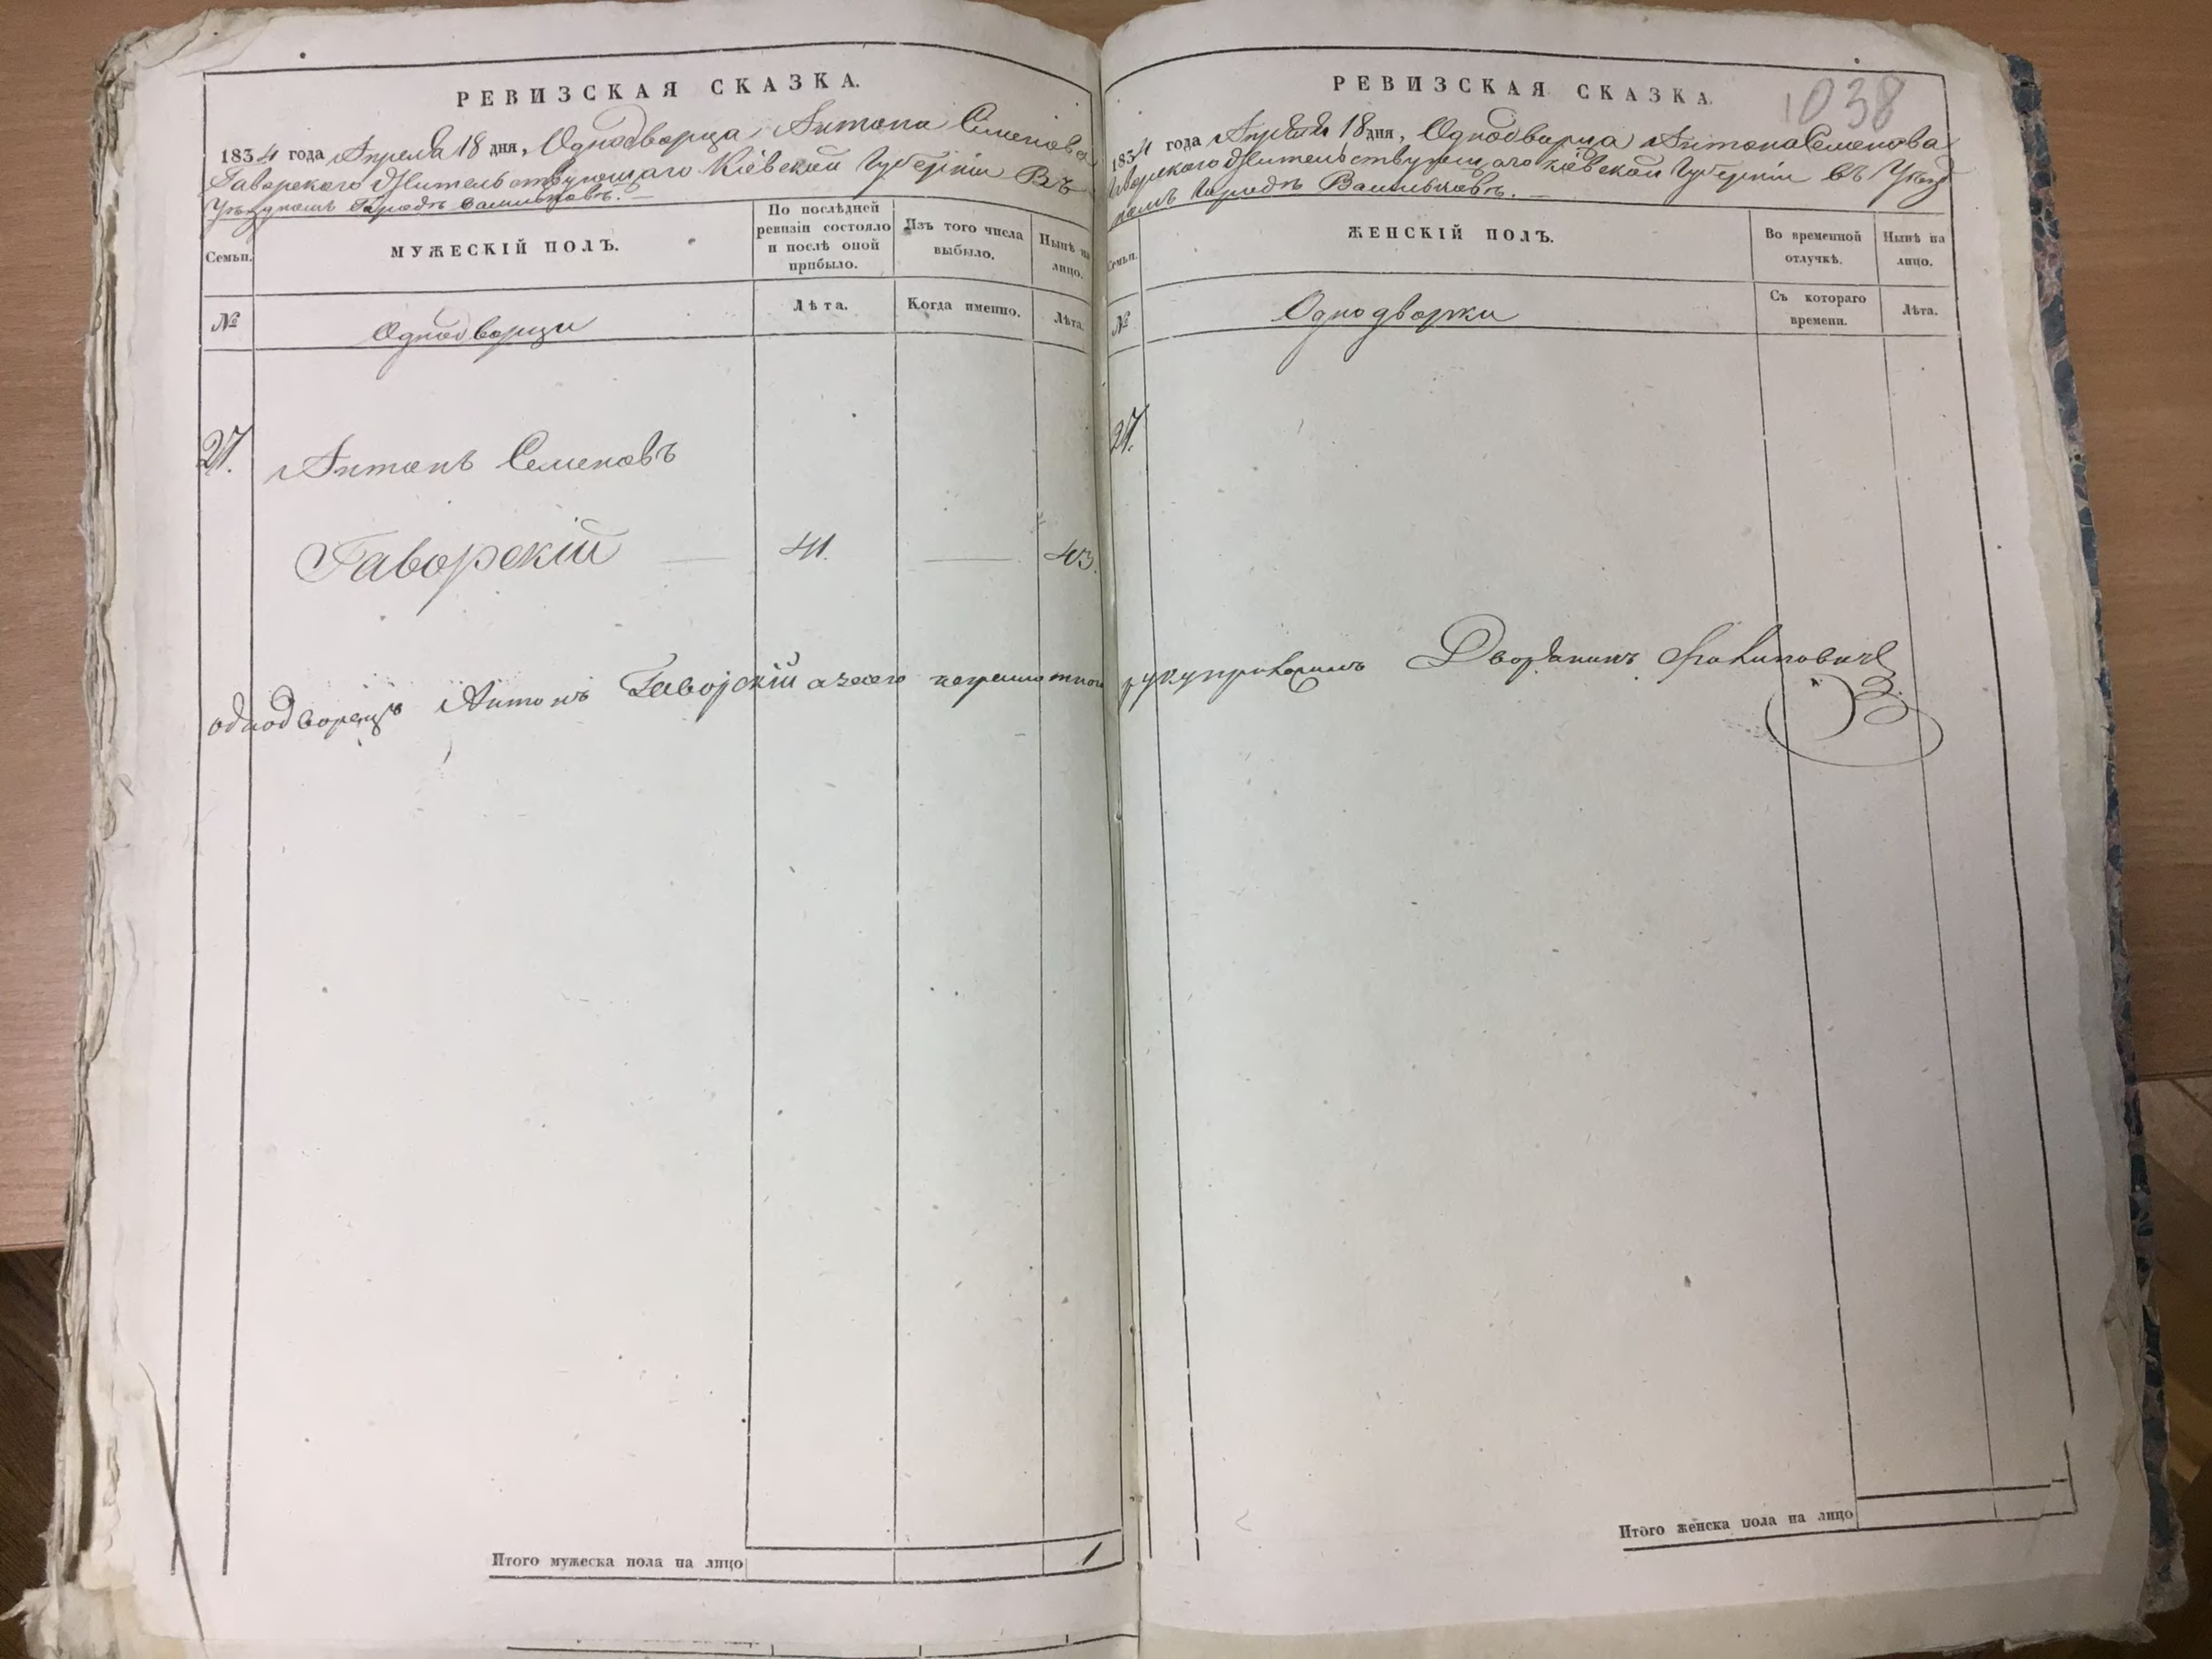 РЕВИЗСКАЯ СКАЗКА.
1834 года Апреля 18 дня, Однодворца Антона Семенова
Гаворского Жительствующаго Кіевской Губерніи Въ
Уѣздномъ Городѣ Васильковѣ.
Семьи.
МУЖЕСКІЙ ПОЛЪ.
По послѣдней ревизіи состояло и послѣ оной прибыло.
Изъ того числа выбыло.
Нынѣ на лицо.
№
Однодворцы
Лѣта.
Когда именно.
Лѣта.
27.
Антонъ Семеновъ
Гаворскій — 41. — 43.
однодворецъ Антонъ Гаворскій а за его неграмотного
Итого мужеска пола на лицо 1
1038
РЕВИЗСКАЯ СКАЗКА.
1834 года Апреля 18 дня, Однодворца Антона Семенова
Гаворского Жительствующаго Кіевской Губерніи въ Уезд
номъ Городѣ Васильковѣ.
Семьи.
ЖЕНСКІЙ ПОЛЪ.
Во временной отлучкѣ.
Нынѣ на лицо.
№
Однодворки
Съ котораго времени.
Лѣта.
27.
Дворянинъ
Итого женска пола на лицо